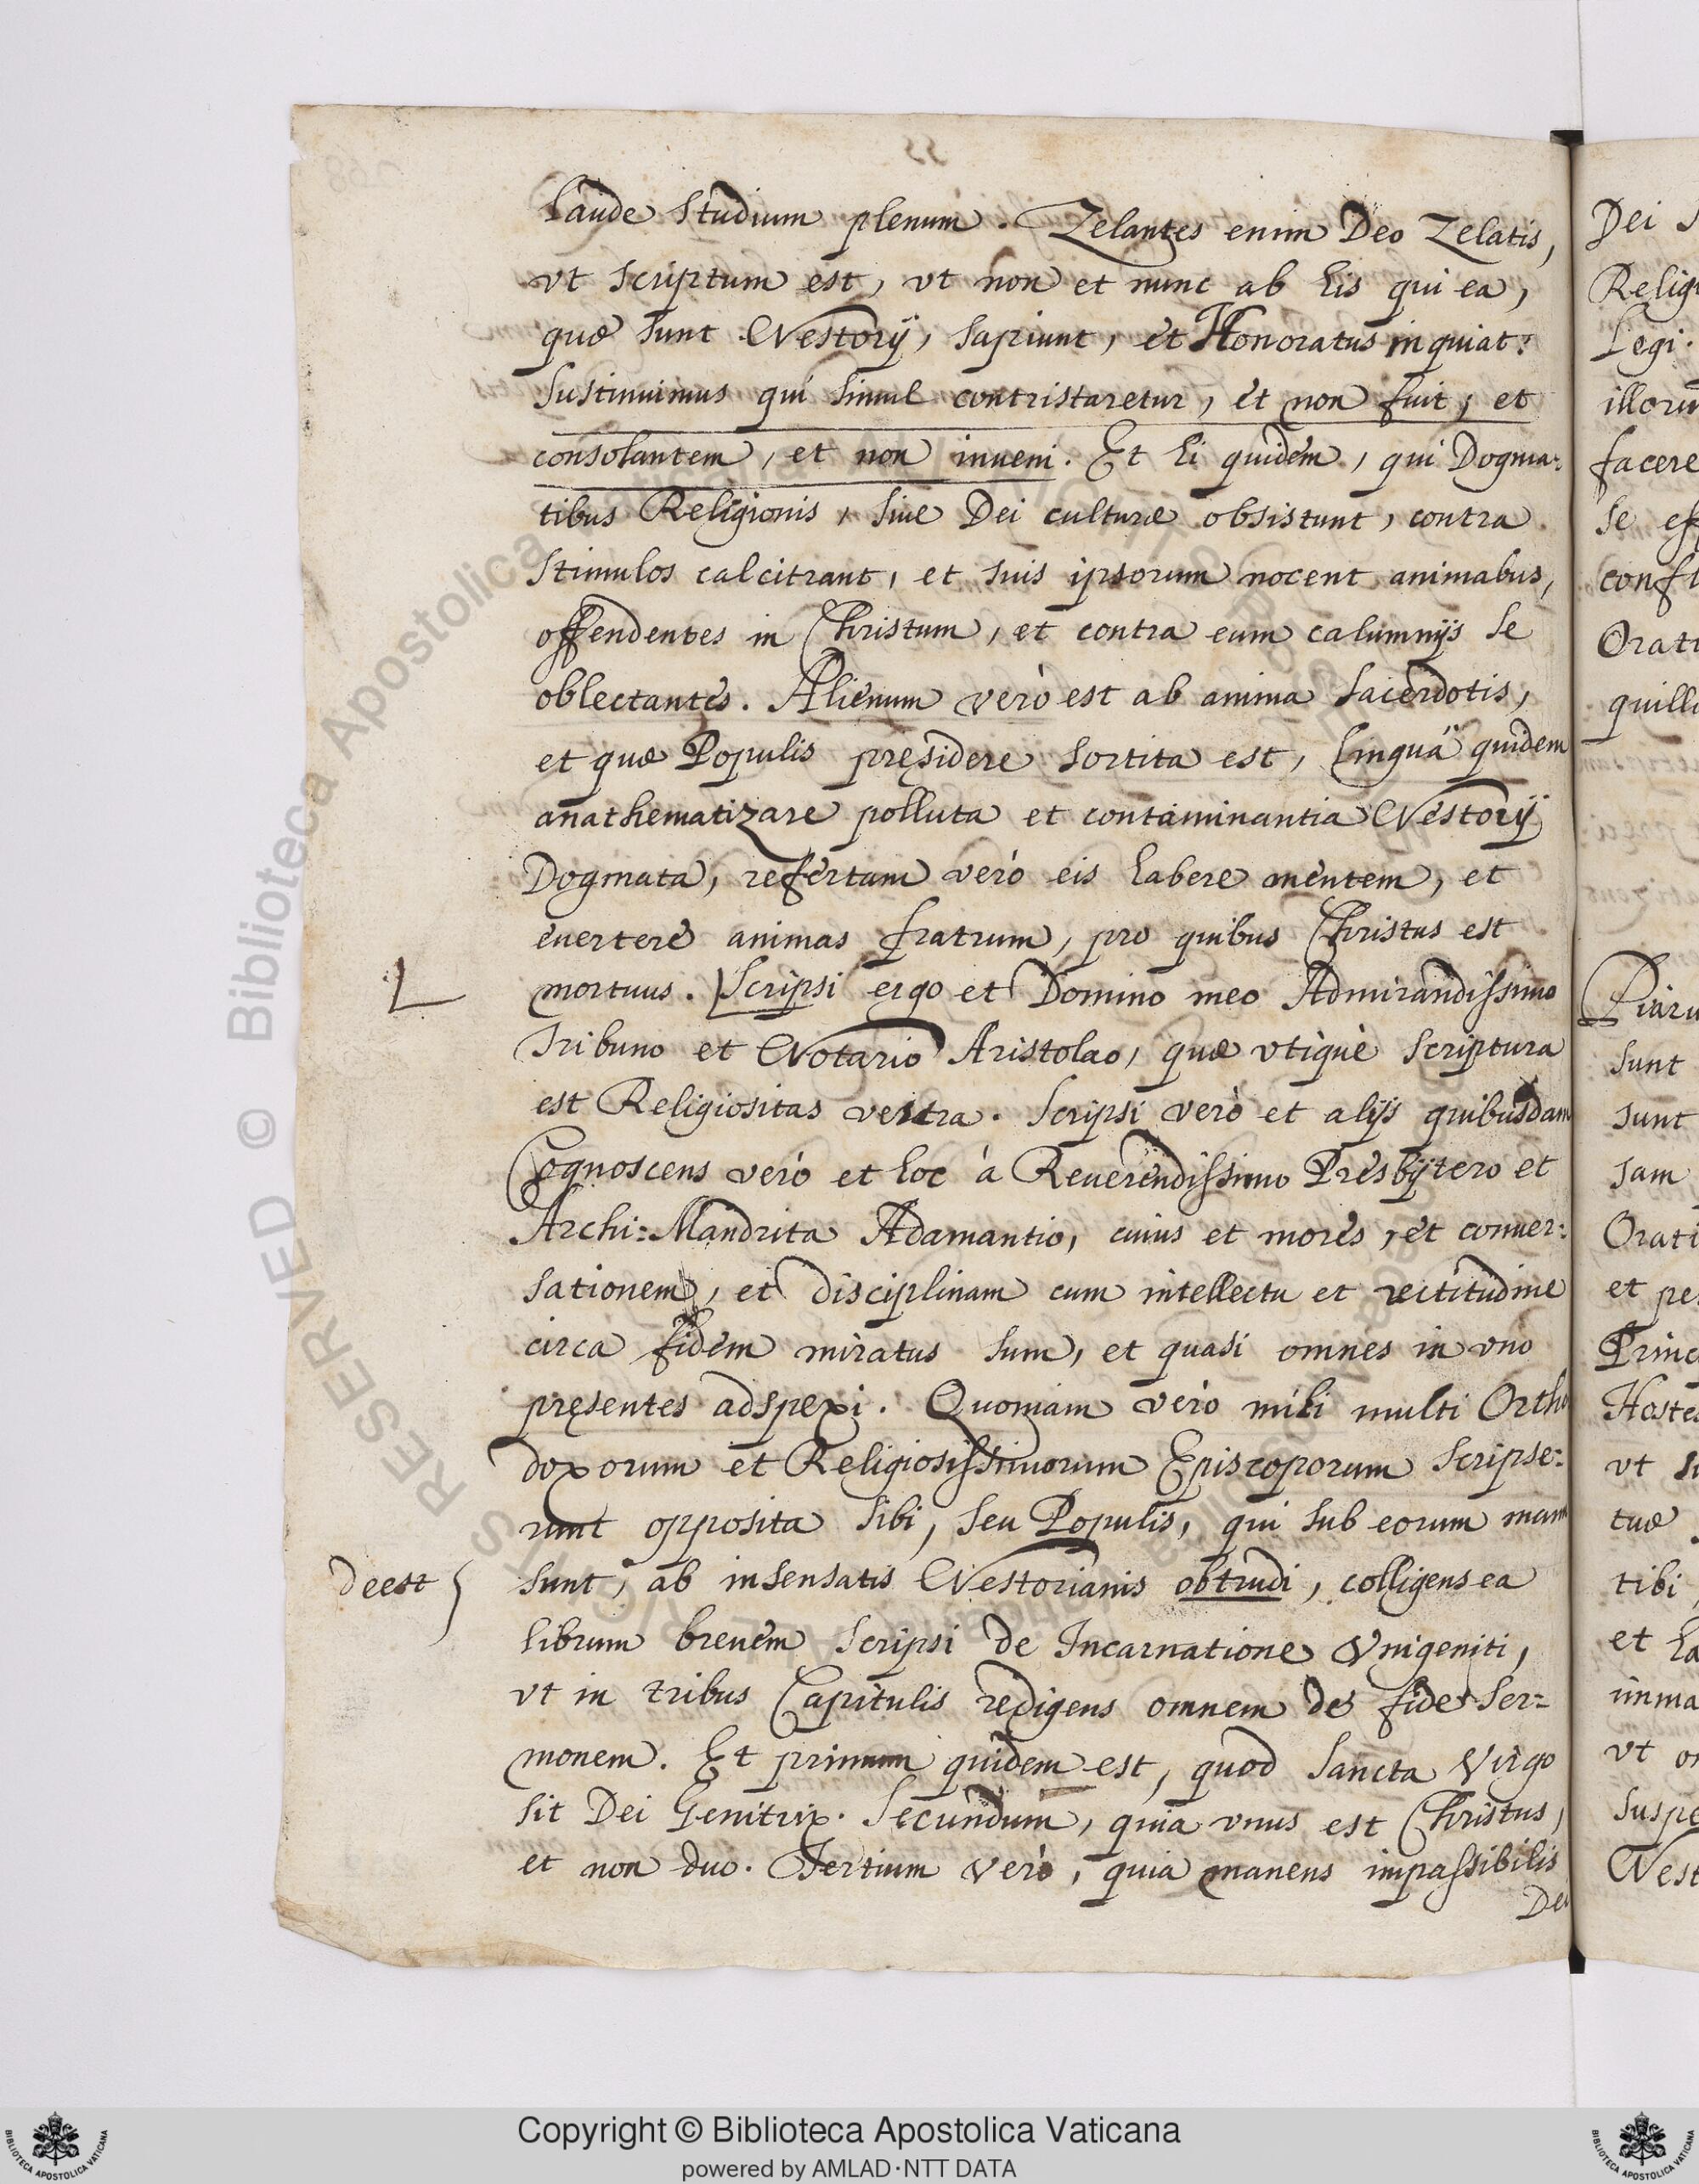 laude studium plenum. Zelantes enim Deo Zelatis,
vt scriptum est, vt non et nunc ab his qui ea,
quæ sunt Nestorÿ, sapiunt, et Honoratus inquiat:
Sustinuimus qui simul contristaretur, et non fuit, et
consolantem, et non inueni. Et hi quidem, qui Dogma:
tibus Religionis, siue Dei culturæ obsistunt, contra
stimulos calcitrant, et suis ipsorum nocent animabus,
offendentes in Christum, et contra eum calumnijs se
oblectantes. Alienum verò est ab anima Sacerdotis,
et quæ Populis pręsidere sortita est, linguâ quidem
anathematizare polluta et contaminantia Nestorÿ
Dogmata, refertam verò eis habere mentem, et
euertere animas fratrum, pro quibus Christus est
L
mortuus. Scripsi ergo et Domino meo Admirandissimo
Tribuno et Notario Aristolao, quæ vtique scriptura
est Religiositas vestra. Scripsi verò et alijs quibusdam
Cognoscens verò et hoc à Reuerendissimo Presbÿtero et
Archi:Mandrita Adamantio, cuius et mores, et conuer:
sationem, et disciplinam cum intellectu et rectitudine
circa fidem miratus sum, et quasi omnes in vno
pręsentes adspexi. Quoniam verò mihi multi Ortho
doxorum et Religiosissimorum Episcoporum scripse:
runt opposita sibi, seu Populis, qui sub eorum manu
deest }
sunt, ab insensatis Nestorianis obtrudi, colligens ea
librum breuem scripsi de Incarnatione Vnigeniti,
vt in tribus Capitulis redigens omnem de fide ser=
monem. Et primum quidem est, quod Sancta Virgo
sit Dei Genitrix. Secundum, quia vnus est Christus,
et non duo. Tertium verò, quia manens impassibilis
Dei
Dei
Religi
Legi.
illorū
facere
se
confl
Orati
quilli
Piaru
sunt
sunt
sam
Orati
et pe
Princ
Hostes
vt
tuæ
tibi,
et ha
imma
vt o
suspe
Nest
© Biblioteca Apostolica Vaticana
RESERVED
Copyright © Biblioteca Apostolica Vaticana
powered by AMLAD·NTT DATA
BIBLIOTECA APOSTOLICA VATICANA
BIBLIOTECA APOSTOLICA VATICANA